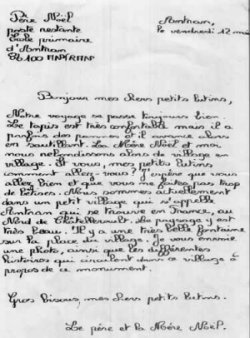 Père Noël
poste restante
Ecole primaire
d'Antran
86100 ANTRAN
Antran,
le vendredi 12 mai
Bonjour mes chers petits lutins,
Notre voyage se passe toujours bien.
Le tapis est très confortable mais il a
parfois des pannes et il avance alors
en sautillant. La Mère Noël et moi
nous redescendons alors de village en
village. Et vous, mes petits lutins
comment allez-vous? J'espère que vous
allez bien et que vous ne faites pas trop
de bêtises. Nous sommes actuellement
dans un petit village qui s'appelle
Antran qui se trouve en France, au
Nord de Châtellerault. Le paysage y est
très beau. Il y a une très belle fontaine
sur la place du village. Je vous envoie
une photo, ainsi que les différentes
histoires qui circulent dans ce village à
propos de ce monument.
Gros bisous, mes chers petits lutins.
Le père et la Mère Noël.